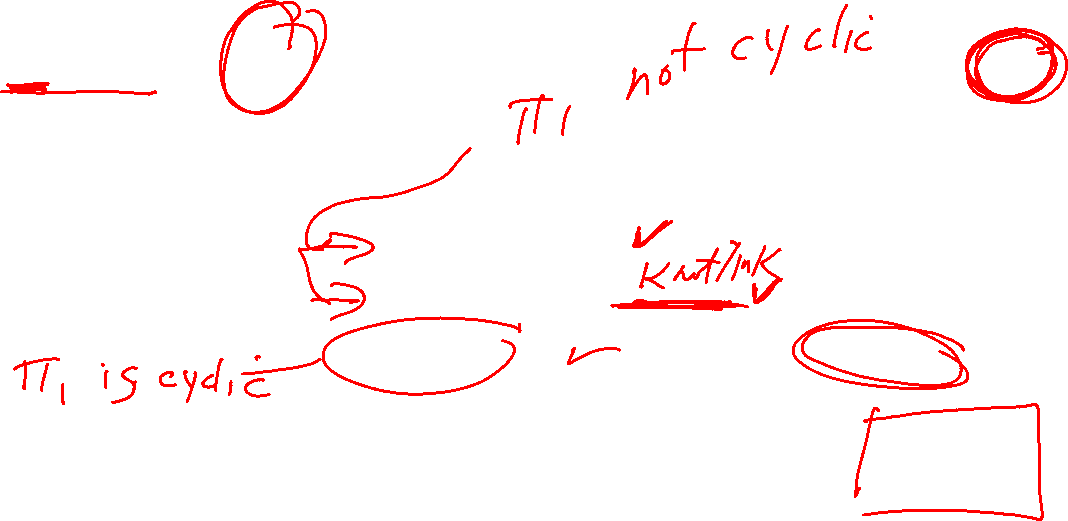 π₁ not cyclic
Knot/link
π₁ is cyclic